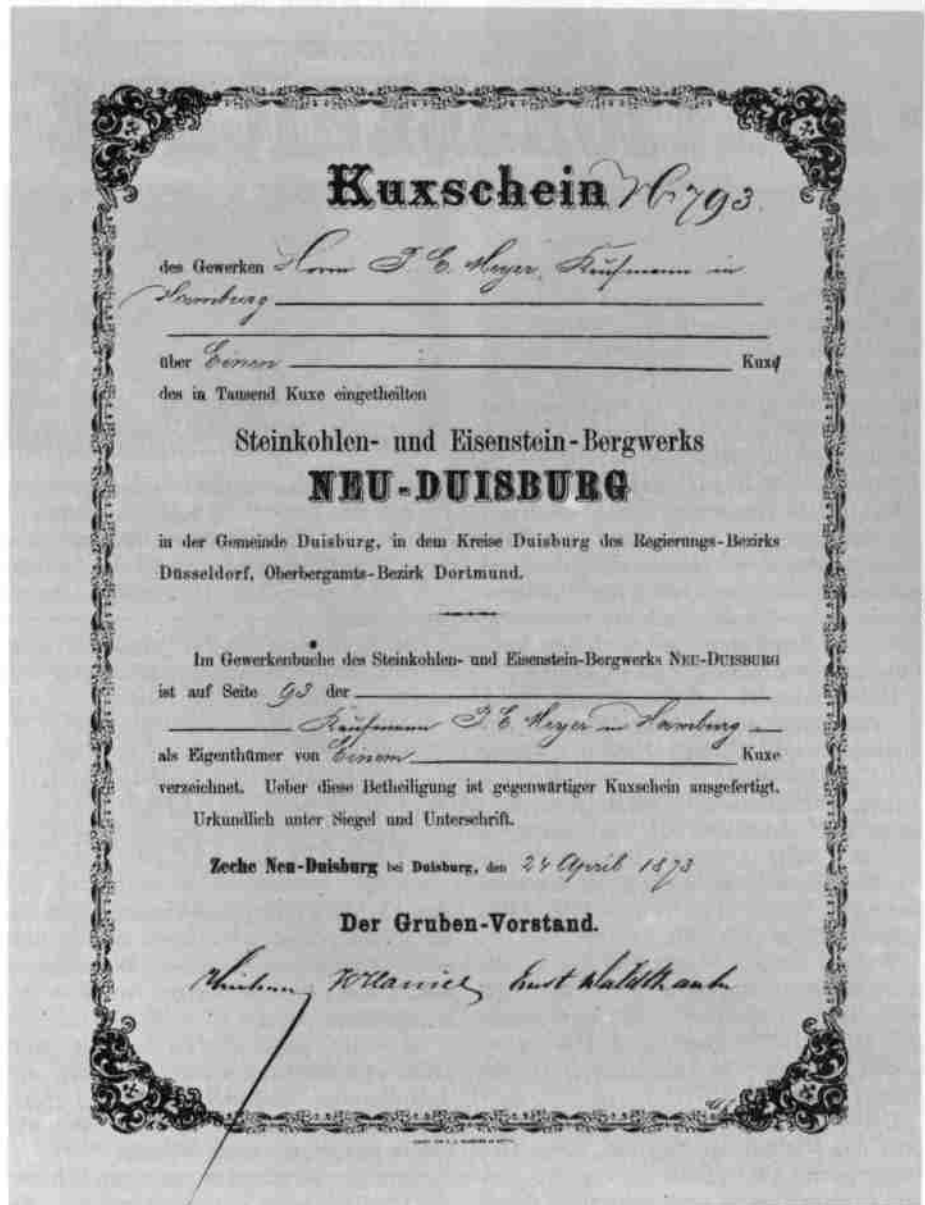 Kuxschein No 793.
des Gewerken Herrn J. E. Meyer, Kaufmann in
Hamburg
über Einen Kux
des in Tausend Kuxe eingetheilten
Steinkohlen- und Eisenstein-Bergwerks
NEU-DUISBURG
in der Gemeinde Duisburg, in dem Kreise Duisburg des Regierungs-Bezirks
Düsseldorf, Oberbergamts-Bezirk Dortmund.
Im Gewerkenbuche des Steinkohlen- und Eisenstein-Bergwerks NEU-DUISBURG
ist auf Seite 93 der
Kaufmann J. E. Meyer in Hamburg
als Eigenthümer von Einem Kuxe
verzeichnet. Ueber diese Betheiligung ist gegenwärtiger Kuxschein ausgefertigt.
Urkundlich unter Siegel und Unterschrift.
Zeche Neu-Duisburg bei Duisburg, den 24 April 1873
Der Gruben-Vorstand.
Haniel Ernst Waldthausen